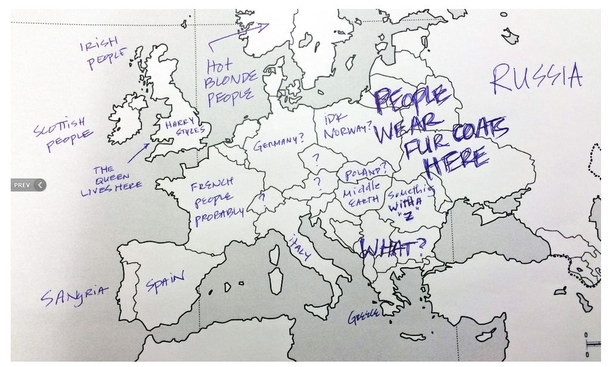 IRISH
PEOPLE
HOT
BLONDE
PEOPLE
RUSSIA
SCOTTISH
PEOPLE
HARRY
STYLES
THE
QUEEN
LIVES HERE
PREV
GERMANY?
IDK
NORWAY?
PEOPLE
WEAR
FUR COATS
HERE
?
?
?
POLAND?
MIDDLE
EARTH
SOMETHING
WITH A
"Z"
FRENCH
PEOPLE
PROBABLY
ITALY
WHAT?
SANGRIA
SPAIN
GREECE
0